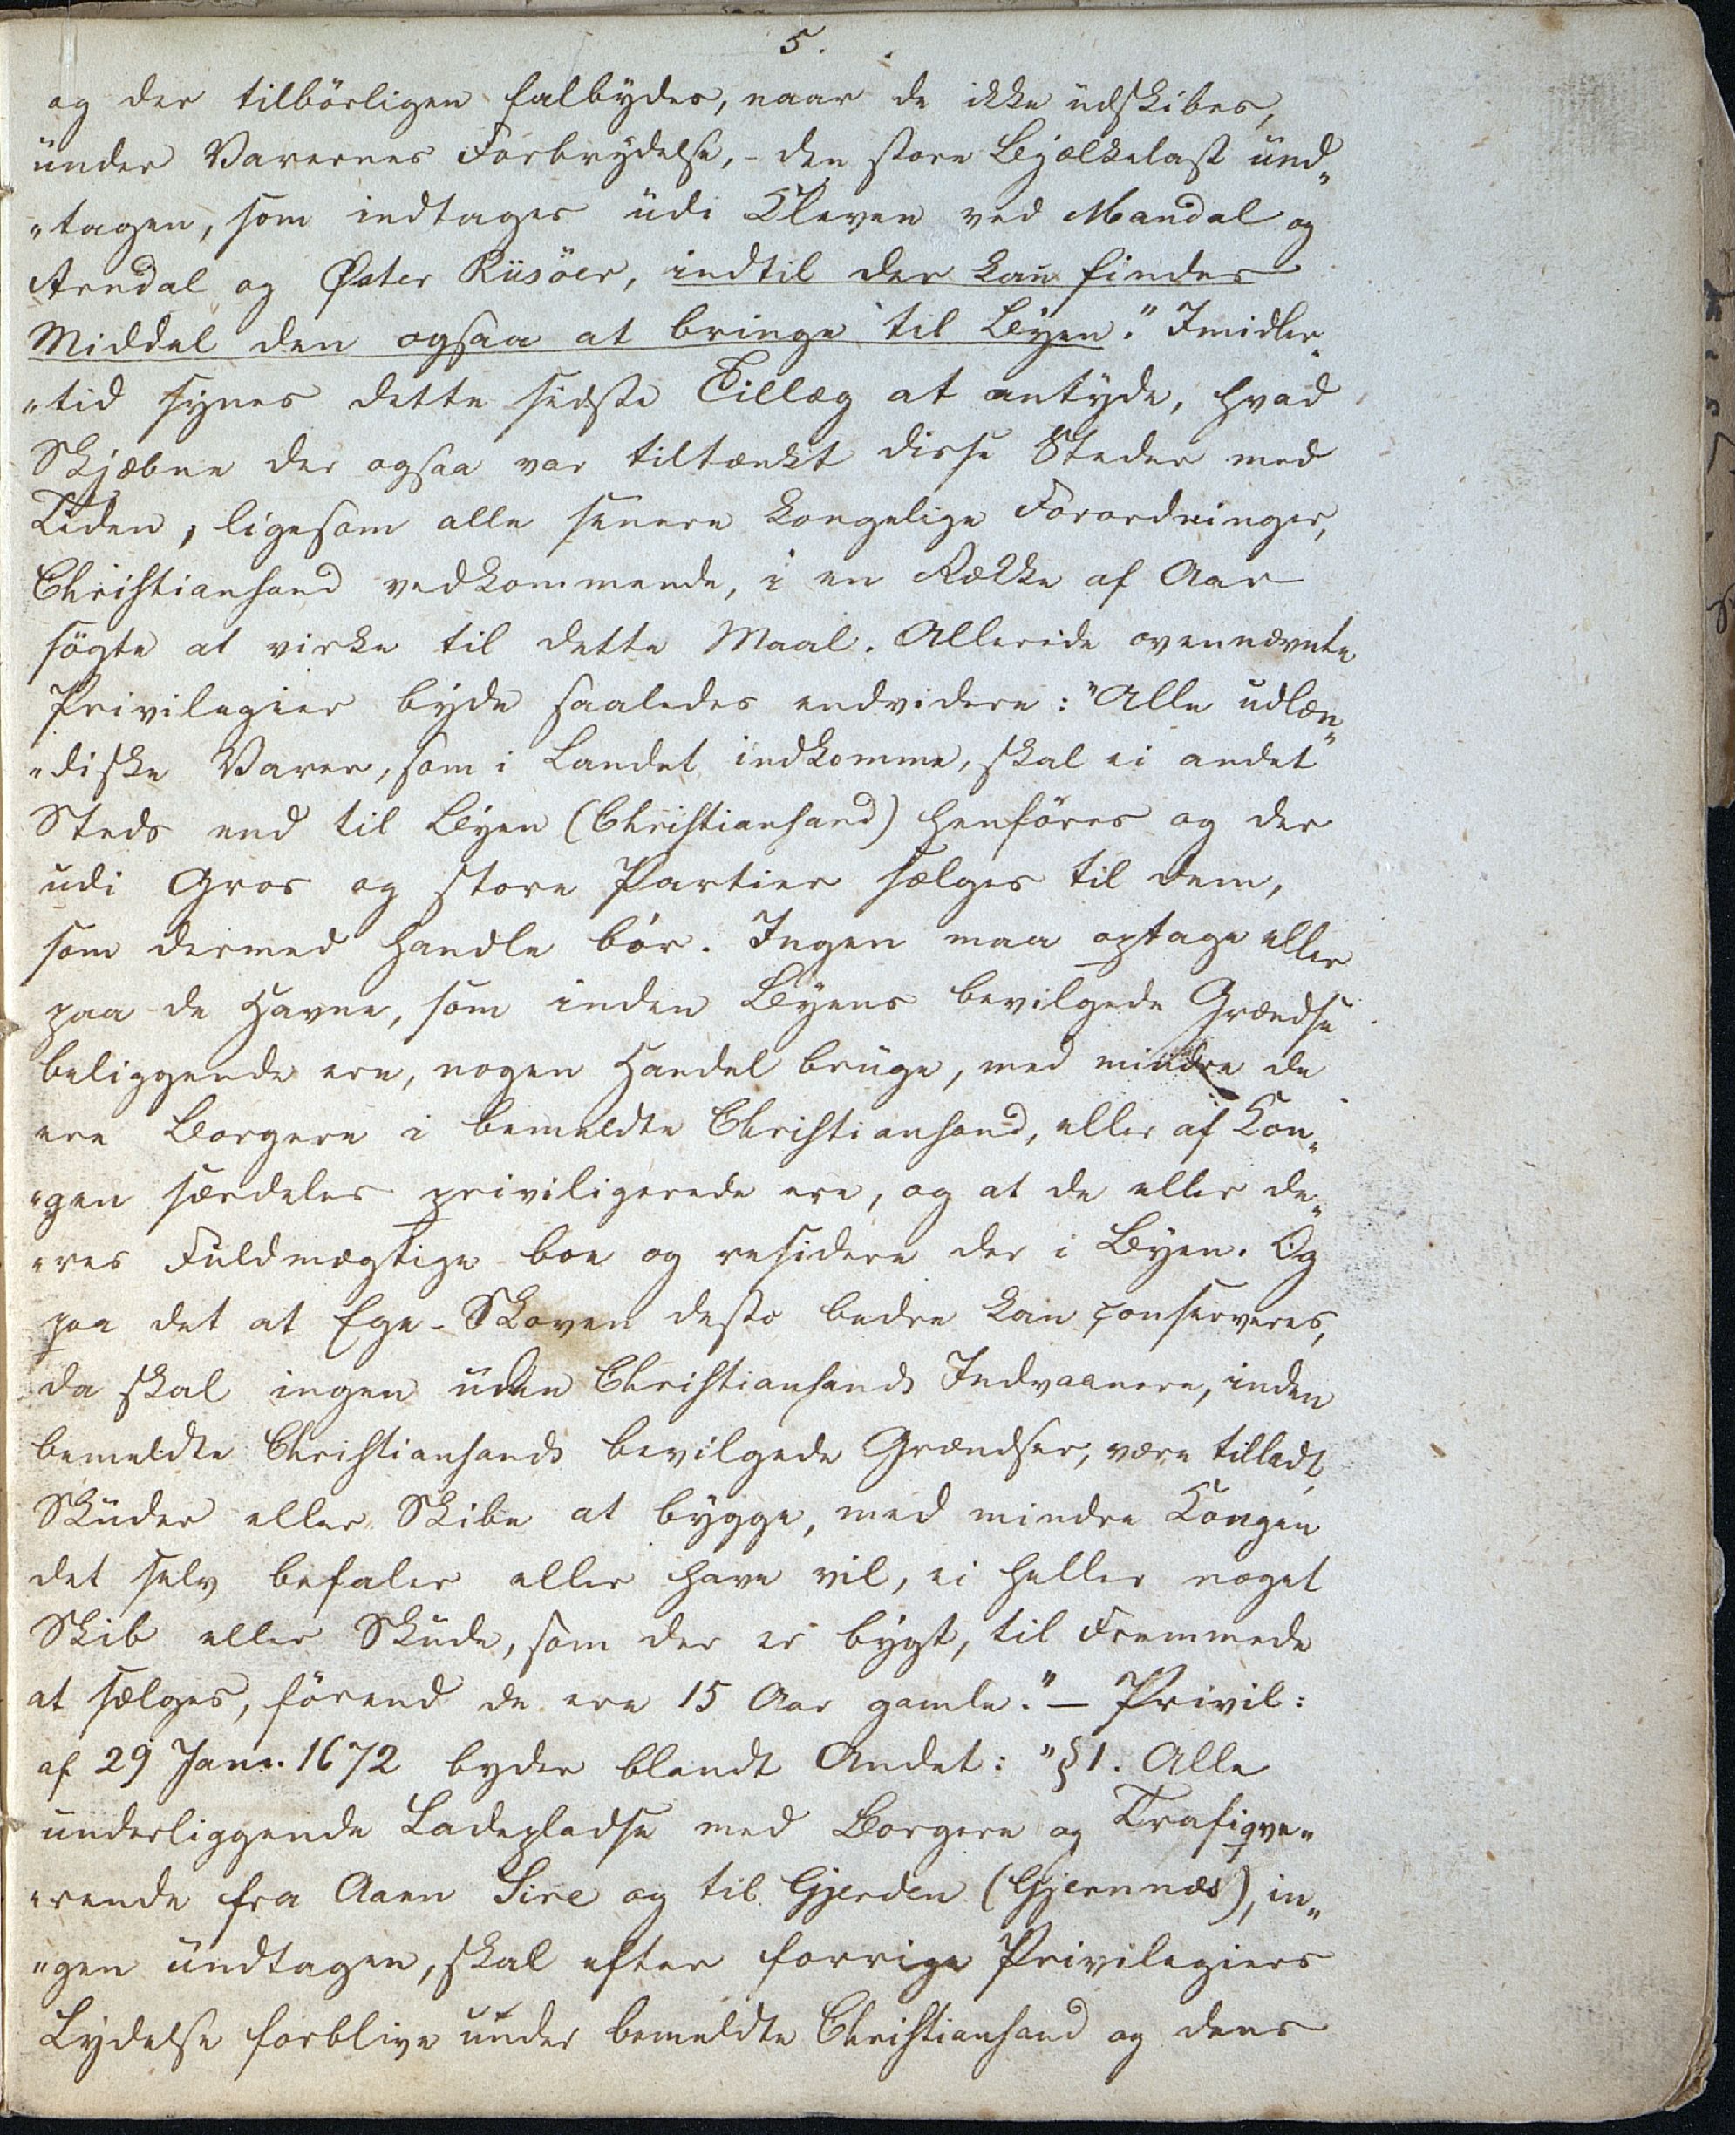 5.
og der tilbörligen falbydes, naar de ikke udskibes,
under Varernes Forbrydelse, - den store Bjælkelast und„
„tagen, som indtages udi Kleven ved Mandal og
Arndal og Øster Riisöer, indtil der kan findes
Middel den ogsaa at bringe til Byen." Imidler„
„tid synes dette sidste Tillæg at antyde, hvad
Skjæbne der ogsaa var tiltænkt disse Steder med
Tiden, ligesom alle senere kongelige Forordninger,
Christiansand vedkommende, i en Række af Aar
sögte at virke til dette Maal. Allerede ovennævnte
Privilegier byde saaledes endvidere: "Alle udlæn„
„diske Varer, som i Landet indkomme, skal ei andet
Steds end til Byen (Christiansand) henföres og der
udi Gros og store Partier sælges til dem,
som dermed handle bör. Ingen maa optage eller
paa de Havne, som inden Byens bevilgede Grændse
beliggende ere, nogen Handel bruge, med mindre de
ere Borgere i bemeldte Christiansand, eller af Kon„
„gen særdeles priviligerede ere, og at de eller de„
„res Fuldmægtige boe og residere der i Byen. Og
paa det at Ege-Skoven desto bedre kan conserveres,
da skal ingen uden Christiansands Indvaanere, inden
bemeldte Christiansands bevilgede Grændser, være tilladt,
Skuder eller Skibe at bygge, med mindre Kongen
det selv befaler eller have vil, ei heller noget
Skib eller Skude, som der er bygt, til Fremmede
at sælges, förend de ere 15 Aar gamle." — Privil:
af 29 Janr. 1672 byder blandt Andet: "§1. Alle
underliggende Ladepladse med Borgere og Trafiqve„
„rende fra Aaen Sire og til Gjerden (Gjernnæs), in„
„gen undtagen, skal efter forrige Privilegiers
Lydelse forblive under bemeldte Christiansand og dens